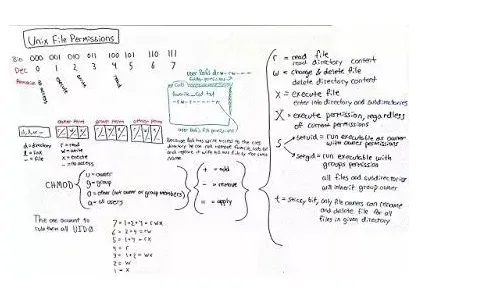 Unix File Permissions
Bin 000 001 010 011 100 101 110 111
Dec 0 1 2 3 4 5 6 7
no access
execute
write
read
owner perm group perm other perm
d = directory r = read
l = link w = write
- = file x = execute
- = no access
user Bob's file permissions
CHMOD
u = owner
g = group
o = other (not owner or group members)
a = all users
+ = add
- = remove
= = apply
This one account to
rule them all UID 0
7 = 1+2+4 = rwx
6 = 2+4 = rw
5 = 1+4 = rx
4 = r
3 = 1+2 = wx
2 = w
1 = x
r = read file
read directory content
w = change & delete file
delete directory content
x = execute file
enter into directory and subdirectories
X = execute permission, regardless
of current permissions
s
setuid = run executable as owner
with owner permissions
setgid = run executable with
groups permission
all files and subdirectories
will inherit group owner
t = sticky bit, only file owners can rename
and delete file for all
files in given directory